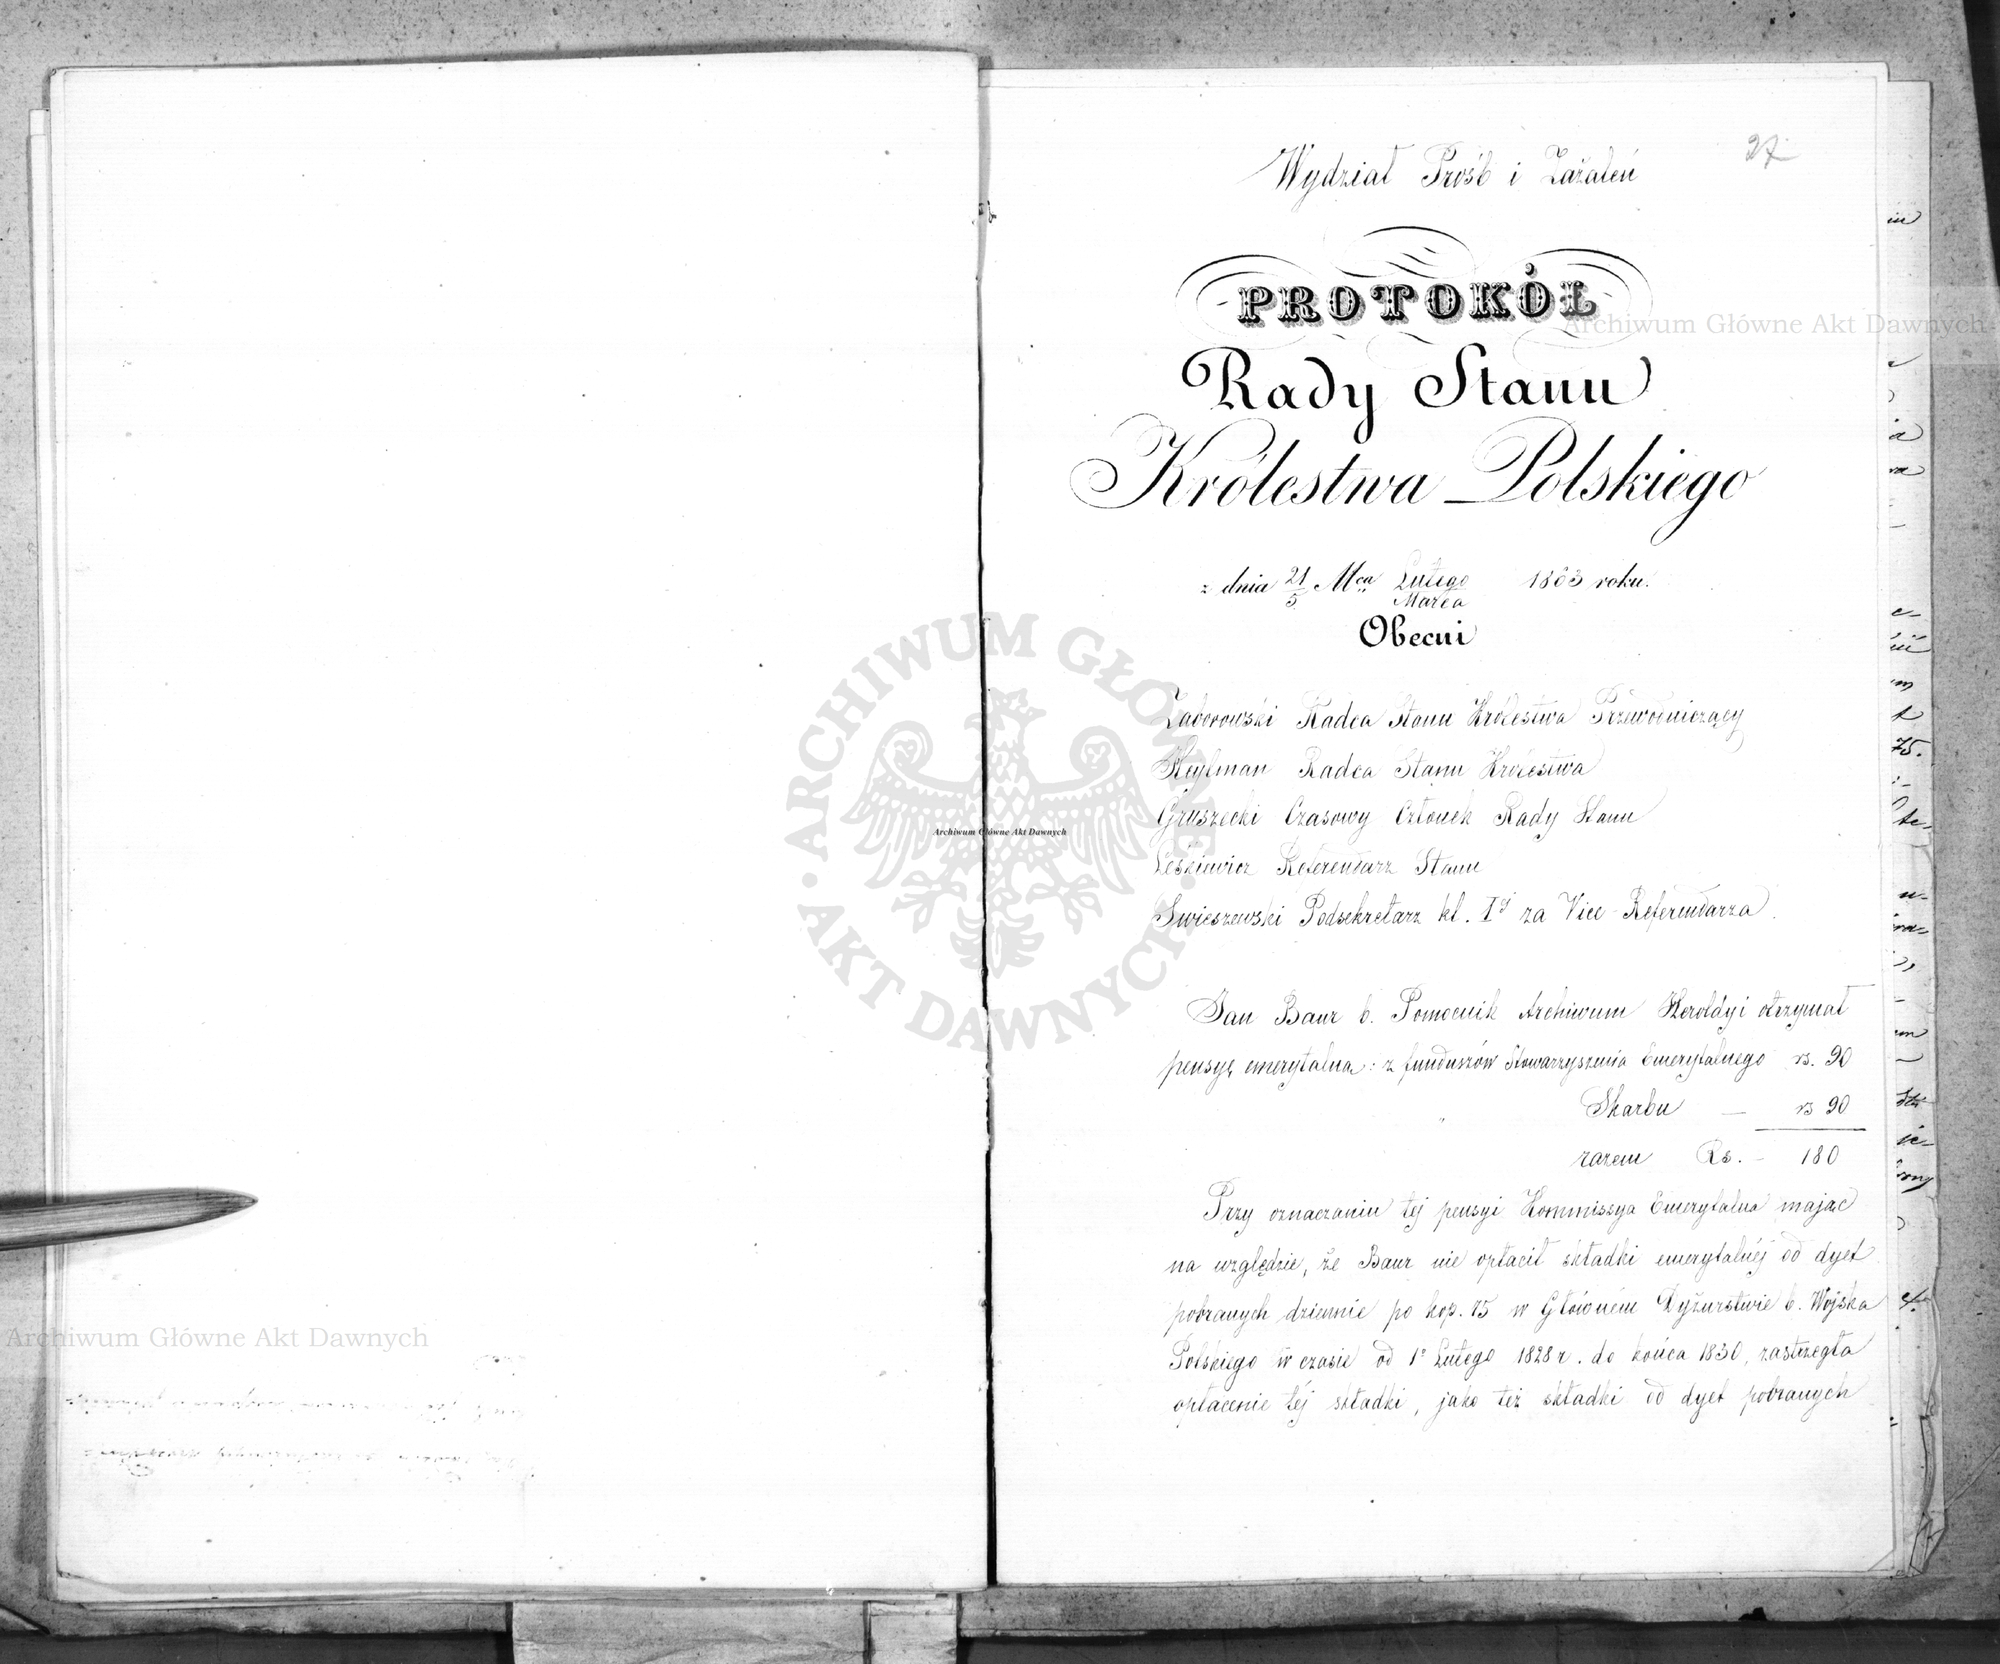 27
Wydział Próśb i Zażaleń
PROTOKÓŁ
Rady Stanu
Królestwa Polskiego
z dnia 21/5 Mca Lutego/Marca 1863 roku.
Obecni
Zaborowski Radca Stanu Królestwa Przewodniczący
Heylman Radca Stanu Królestwa
Gruszecki Czasowy Członek Rady Stanu
Leśkiewicz Referendarz Stanu
Swieszewski Podsekretarz kl. Iéj za Vice-Referendarza.
Jan Baur b. Pomocnik Archiwum Heroldyi otrzymał
pensyę emerytalną: z funduszów Stowarzyszenia Emerytalnego rs. 90
" Skarbu — rs 90
razem Rs. – 180
Przy oznaczaniu tej pensyi Kommissya Emerytalna mając
na względzie, że Baur nie opłacił składki emerytalnéj od dyet
pobranych dziennie po kop. 75 w Główném Dyżurstwie b. Wojska
Polskiego w czasie od 1º Lutego 1828 r. do końca 1830, zastrzegła
opłacenie téj składki, jako też składki od dyet pobranych
Archiwum Główne Akt Dawnych
ARCHIWUM GŁÓWNE AKT DAWNYCH
Archiwum Główne Akt Dawnych
Archiwum Główne Akt Dawnych